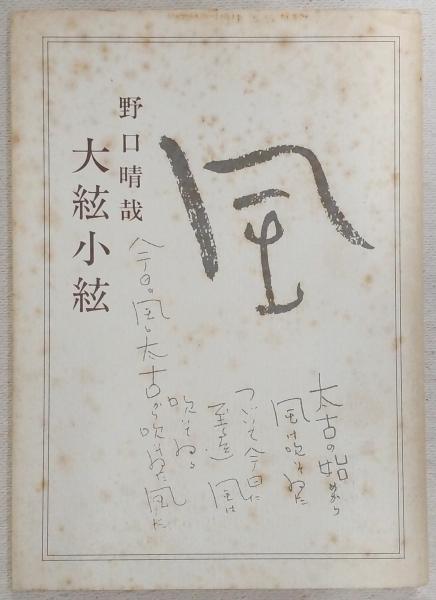 野口晴哉
大絃小絃
風
太古の始めから
風は吹いてゐた
つづいて今日に
至る迄 風は
吹いてゐる
今日の風も太古から吹いてゐた風だ